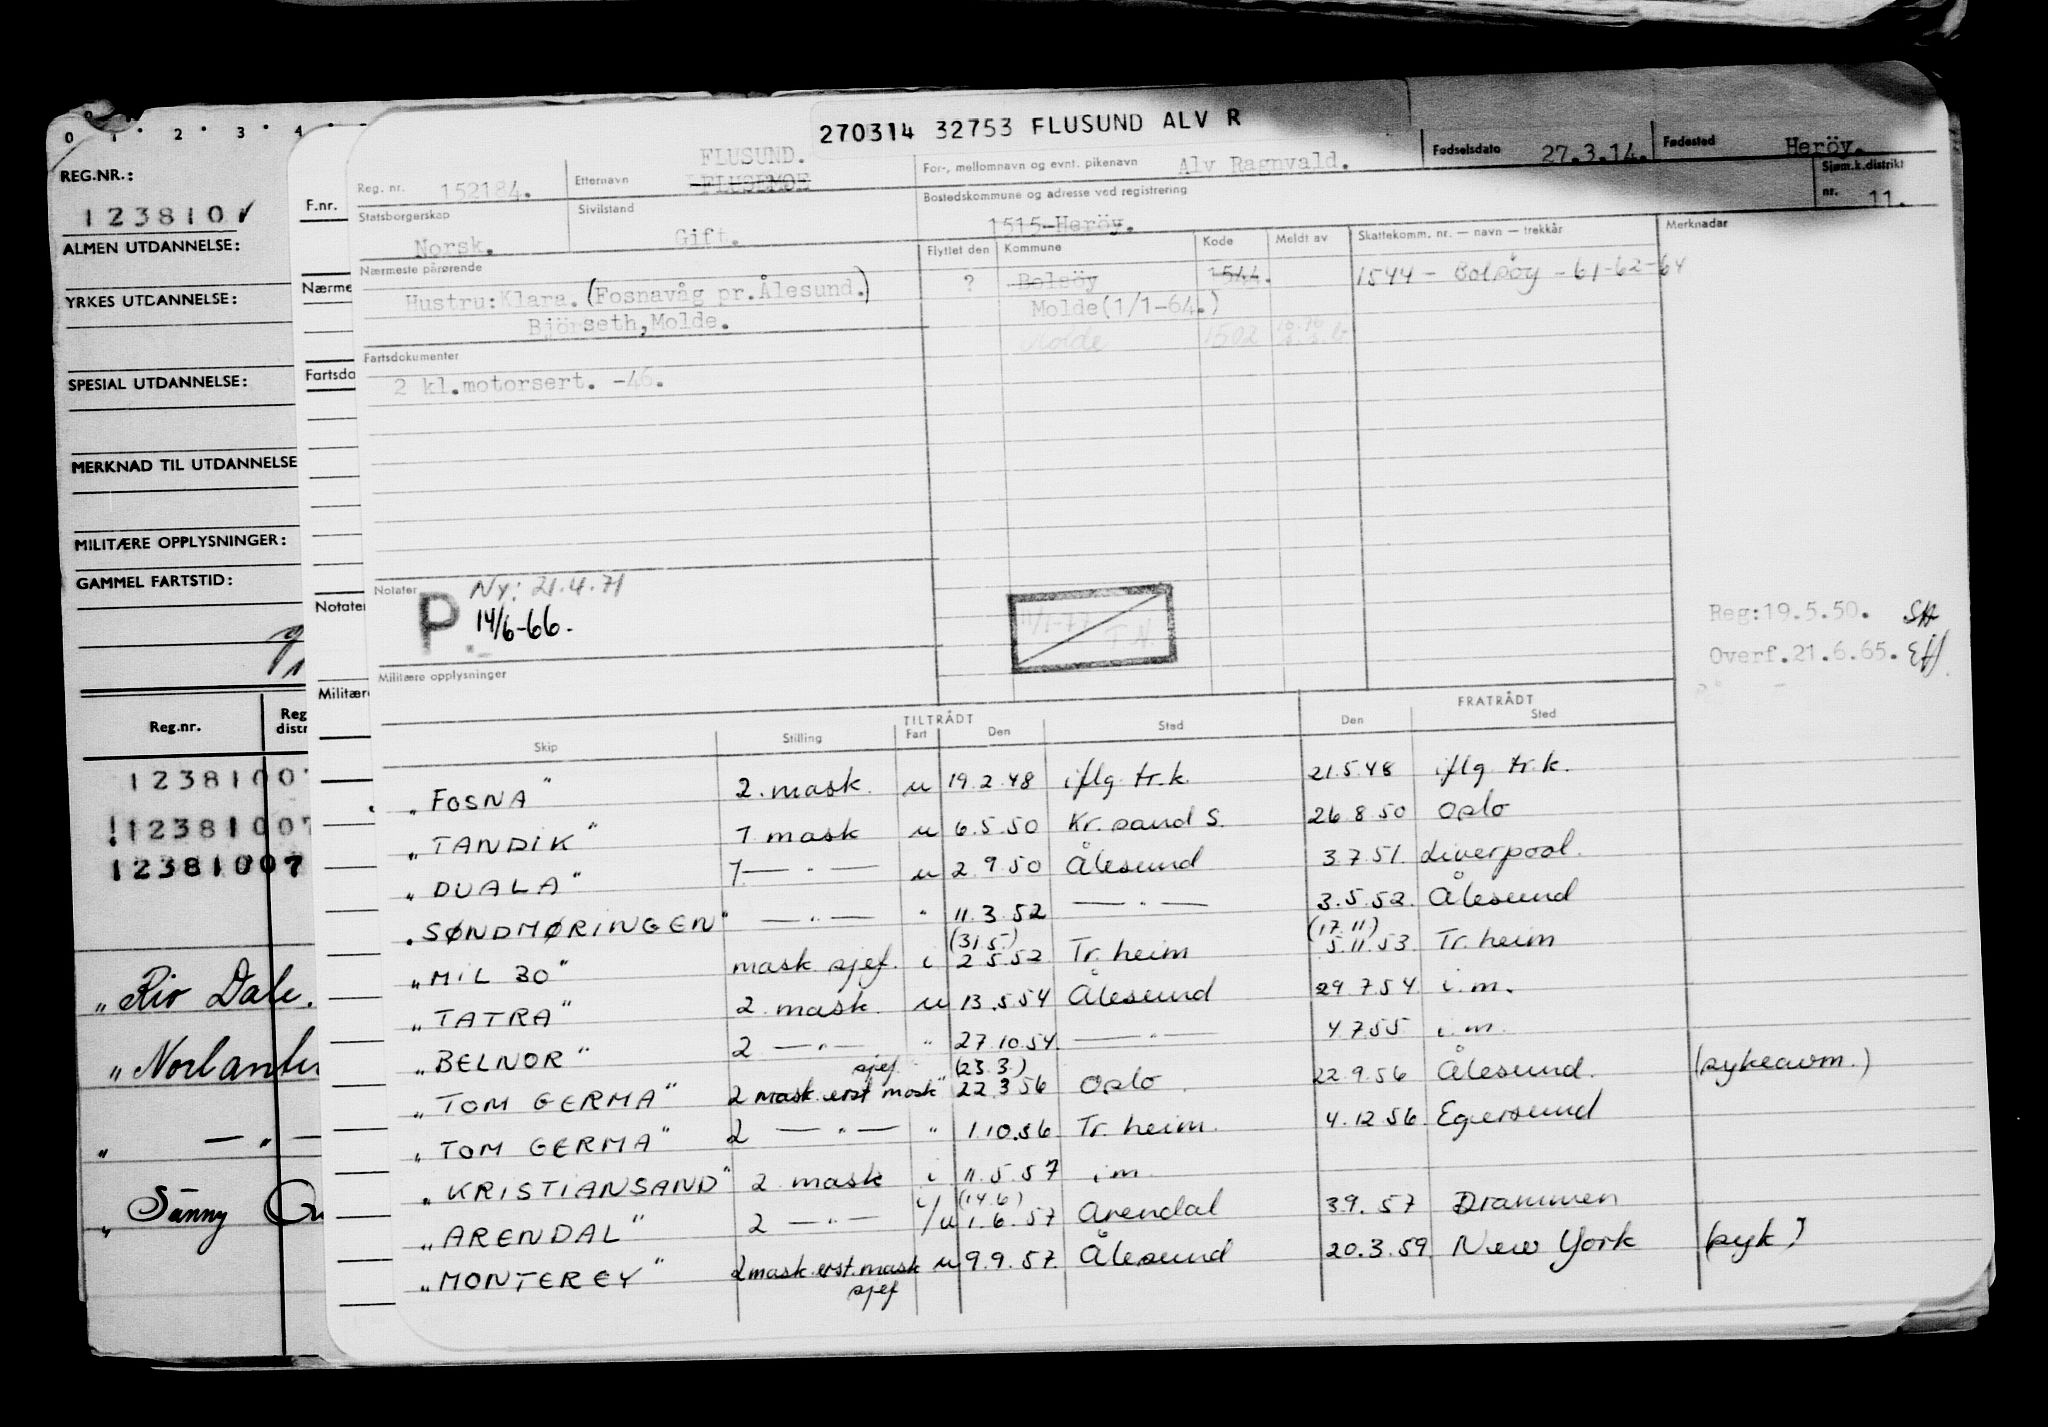 270314 32753 FLUSUND ALV R
0 1 2 3 4
REG.NR.:
123810
ALMEN UTDANNELSE:
YRKES UTDANNELSE:
SPESIAL UTDANNELSE:
MERKNAD TIL UTDANNELSE
MILITÆRE OPPLYSNINGER:
GAMMEL FARTSTID:
Reg.nr. Reg distr
12381007
!12381007
12381007
„Rio Dale.
„Norlantic
„ — „ —
„Sunny
F.nr.
Nærme
Fartsdo
Notater
Militære
Reg. nr. 152184. Etternavn FLUSUND. FLUSEMOE For-, mellomnavn og evnt. pikenavn Alv Ragnvald. Fødselsdato 27.3.14. Fødested Heröy.
Statsborgerskap Norsk. Sivilstand Gift. Bostedskommune og adresse ved registrering 1515-Heröy. Sjøm.k.distrikt nr. 11.
Nærmeste pårørende Flyttet den Kommune Kode Meldt av Skattekomm. nr. — navn — trekkår Merknader
Hustru:Klara.(Fosnavåg pr.Ålesund.) ? Bolsöy 1544. 1544 - Bolsöy - 61-62-64
Björseth,Molde. Molde(1/1-64.)
Molde 1502
Fartsdokumenter
2 kl.motorsert. -46.
Notater Ny: 21.4.71
P 14/6-66.
11/1-77 T.N.
Reg:19.5.50.
Overf.21.6.65.
Militære opplysninger
TILTRÅDT FRATRÅDT
Skip Stilling Fart Den Sted Den Sted
„FOSNA" 2. mask. u 19.2.48 iflg. tr.k. 21.5.48 iflg. tr.k.
„TANDIK" 1 mask u 6.5.50 Kr.sand S. 26.8.50 Oslo
„DUALA" 1 — „ — u 2.9.50 Ålesund 3.7.51. Liverpool.
„SØNDMØRINGEN" — „ — " 11.3.52 — „ — 3.5.52. Ålesund
„MIL 30" mask sjef. i (31.5.) 2.5.52 Tr.heim (17.11) 5.11.53. Tr.heim
„TATRA" 2. mask. u 13.5.54 Ålesund 29.7.54. i.m.
„BELNOR" 2 — „ — " 27.10.54. — „ — 4.7.55 i.m.
„TOM GERMA" 2 mask. erst mask sjef " (23.3.) 22.3.56 Oslo. 22.9.56 Ålesund. (sykeavm.)
„TOM GERMA" 2 — „ — " 1.10.56. Tr.heim. 4.12.56. Egersund
„KRISTIANSAND" 2. mask i 11.5.57 i.m.
„ARENDAL" 2 — „ — i/u (14.6) 1.6.57 Arendal 3.9.57 Drammen
„MONTEREY" 2 mask. erst. mask sjef u 9.9.57. Ålesund 20.3.59. New York (syk)